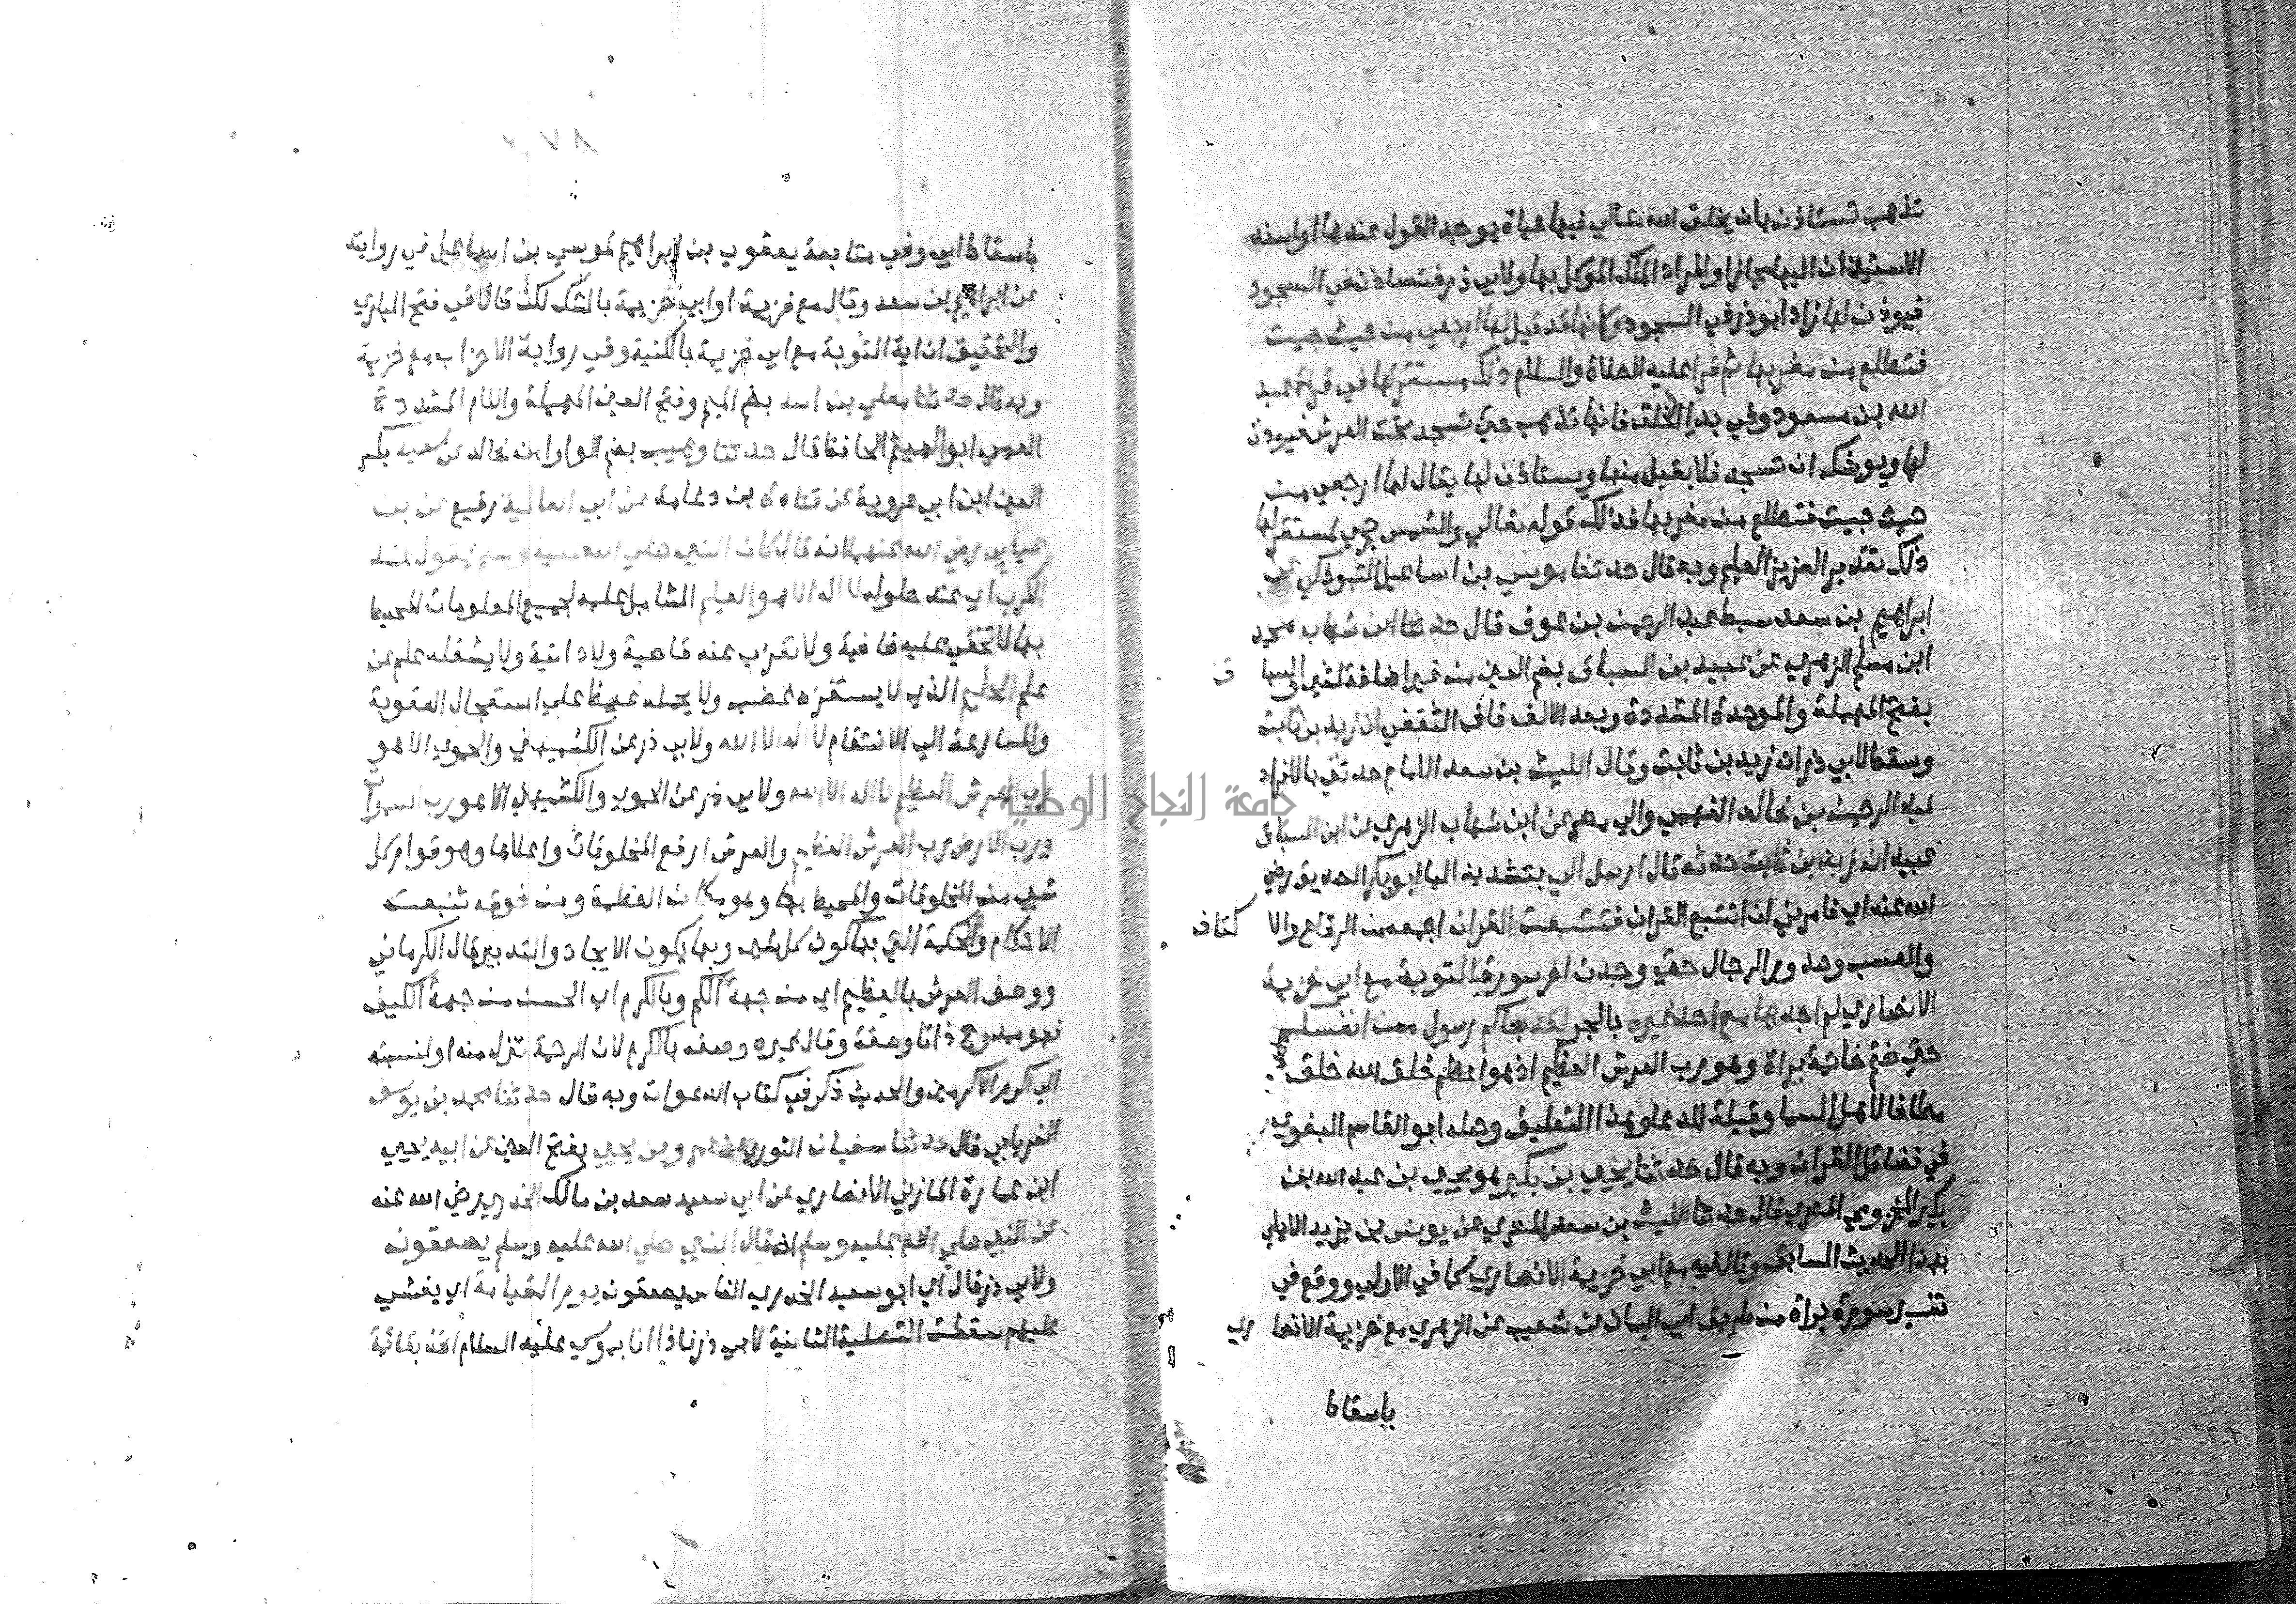 تذهب تستاذن بان يخلق الله تعالي فيها حياة يوجد القول عندها او اسند
الاستيذان اليها مجازا او المراد الملك الموكل بها ولابي ذر فتستاذن في السجود
فيوذن لها زاد ابو ذر في السجود وكانها قد قيل لها ارجعي من حيث جيت
فتطلع من مغربها ثم قرا عليه الصلاة والسلام ذلك مستقر لها في قراة عبد
الله بن مسعود وفي بدا الخلق فانها تذهب حتي تسجد تحت العرش فيوذن
لها ويوشك ان تسجد فلا يقبل منها ويستاذن لها يقال لها ارجعي من
حيث جيت فتطلع من مغربها فذلك قوله تعالي والشمس تجري لمستقر لها
ذلك تقدير العزيز العليم وبه قال حدثنا موسي بن اسماعيل التبوذكي عن
ابراهيم بن سعد سبط عبد الرحمن بن عوف قال حدثنا ابن شهاب محمد
ابن مسلم الزهري عن عبيد بن السباق بضم العين من غير اضافة لشي والسبا ق
بفتح المهملة والموحدة المشددة وبعد الالف قاف الثقفي ان زيد بن ثابت
وسقط لابي ذر ان زيد بن ثابت وقال الليث بن سعد الامام حدثني بالافراد
عبد الرحمن بن خالد الفهمي والي مصر عن ابن شهاب الزهري عن ابن السباق
عبيد ان زيد بن ثابت حدثه قال ارسل الي بتشديد اليا ابو بكر الصديق رضي
الله عنه اي فامرني ان اتتبع القران فتتبعت القران اجمعه من الرقاع والا كتاف
والعسب وصدور الرجال حتي وجدت اخر سورة التوبة مع ابي خزيمة
الانصاري لم اجدها مع احد غيره بالجر لقد جاكم رسول من انفسكم
حتي ختم خاتمة براة وهو رب العرش العظيم اذ هو اعظم خلق الله خلق
مطافا لاهل السما وقبلة للدعا وهذا التعليق وصله ابو القاسم البغوي
في فضائل القران وبه قال حدثنا يحيي بن بكير هو يحيي بن عبد الله بن
بكير المخزومي المصري قال حدثنا الليث بن سعد المصري عن يونس بن يزيد الايلي
بهذا الحديث السابق وقال فيه مع ابي خزيمة الانصاري كما في الاولي ووقع في
تفسير سورة براة من طريق ابي اليمان عن شعيب عن الزهري مع خزيمة الانصا ري
باسقاط
باسقاط ابي وفي متابعة يعقوب بن ابراهيم لموسي بن اسماعيل في روايته
عن ابراهيم بن سعد وقال مع خزيمة او ابي خزيمة بالشك لكن قال في فتح الباري
والتحقيق ان اية التوبة مع ابي خزيمة بالكنية وفي رواية الاحزاب مع خزيمة
وبه قال حدثنا معلي بن اسد بضم الميم وفتح العين المهملة واللام المشددة
العمي ابو الهيثم الحافظ قال حدثنا وهيب بضم الواو ابن خالد عن سعيد بكسر
العين ابن ابي عروبة عن قتادة بن دعامة عن ابي العالية رفيع عن بن
عباس رضي الله عنهما انه قال كان النبي صلي الله عليه وسلم يقول عند
الكرب اي عند حلوله لا اله الا هو العليم الشامل علمه لجميع المعلومات المحيط
بها لا تخفي عليه خافية ولا تعزب عنه قاصية ولا دانية ولا يشغله علم عن
علم الحليم الذي لا يستفزه غضب ولا يحمله غيظ علي استعجال العقوبة
والمسارعة الي الانتقام لا اله الا الله ولابي ذر عن الكشميهني والحموي الا هو
رب العرش العظيم لا اله الا الله ولابي ذر عن الحموي والكشميهني الا هو رب السموات
ورب الارض رب العرش العظيم والعرش ارفع المخلوقات واعلاها وهو قوام كل
شي من المخلوقات والمحيط بها وهو مكان العظمة ومن فوقه تنبعث
الاحكام والحكمة التي بها كون كل شي وبها يكون الايجاد والتدبير قال الكرماني
ووصف العرش بالعظيم اي من جهة الكم وبالكرم اي الحسن من جهة الكيف
فهو ممدوح ذاتا وصفة وقال غيره وصفه بالكرم لان الرحمة تنزل منه او لنسبته
الي اكرم الاكرمين والحديث ذكر في كتاب الدعوات وبه قال حدثنا محمد بن يوسف
الفريابي قال حدثنا سفيان الثوري عن عمرو بن يحيي بفتح العين عن ابيه يحيي
ابن عمارة المازني الانصاري عن ابي سعيد سعد بن مالك الخدري رضي الله عنه
عن النبي صلي الله عليه وسلم انه قال النبي صلي الله عليه وسلم يصعقون
ولابي ذر قال اي ابو سعيد الخدري الناس يصعقون يوم القيامة اي يغشي
عليهم سقطت التصلية الثانية لابي ذر فاذا انا بموسي عليه السلام اخذ بقائمة
جامعة النجاح الوطنية